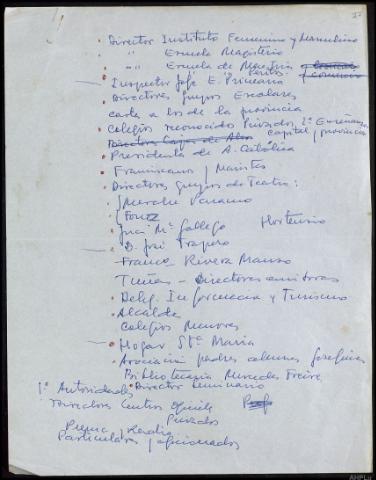 Director Instituto Femenino y Masculino
" Escuela Magisterio
" " Escuela de Maestría
Inspector Jefe E. Primaria
Directores grupos Escolares
carta a los de la provincia
Colegios reconocidos Privados 2ª Enseñanza
capital y provincia
Presidenta de A. Católica
Franciscanos y Maristas
Directores grupos de Teatro:
José Mª Gallego Hortensio
D. José Trapero
Franco Rivera Manso
Tunas - Directores emisoras
Deleg. Información y Turismo
Alcalde
Colegios Menores
Hogar Stª María
Asociación padres alumnos Josefinas
Bibliotecaria Mercedes Freire
1º Autoridades Director Seminario
Directores Centros Oficiales
Privados
Prensa y Radio
Particulares y aficionados
AHPLu